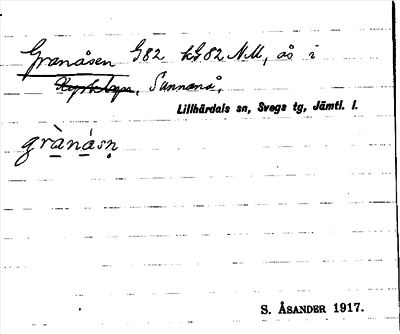 Granåsen G82 kG82 NM, ås i
Sunnanå,
Lillhärdals sn, Svegs tg, Jämtl. l.
grànásn̥
S. ÅSANDER 1917.